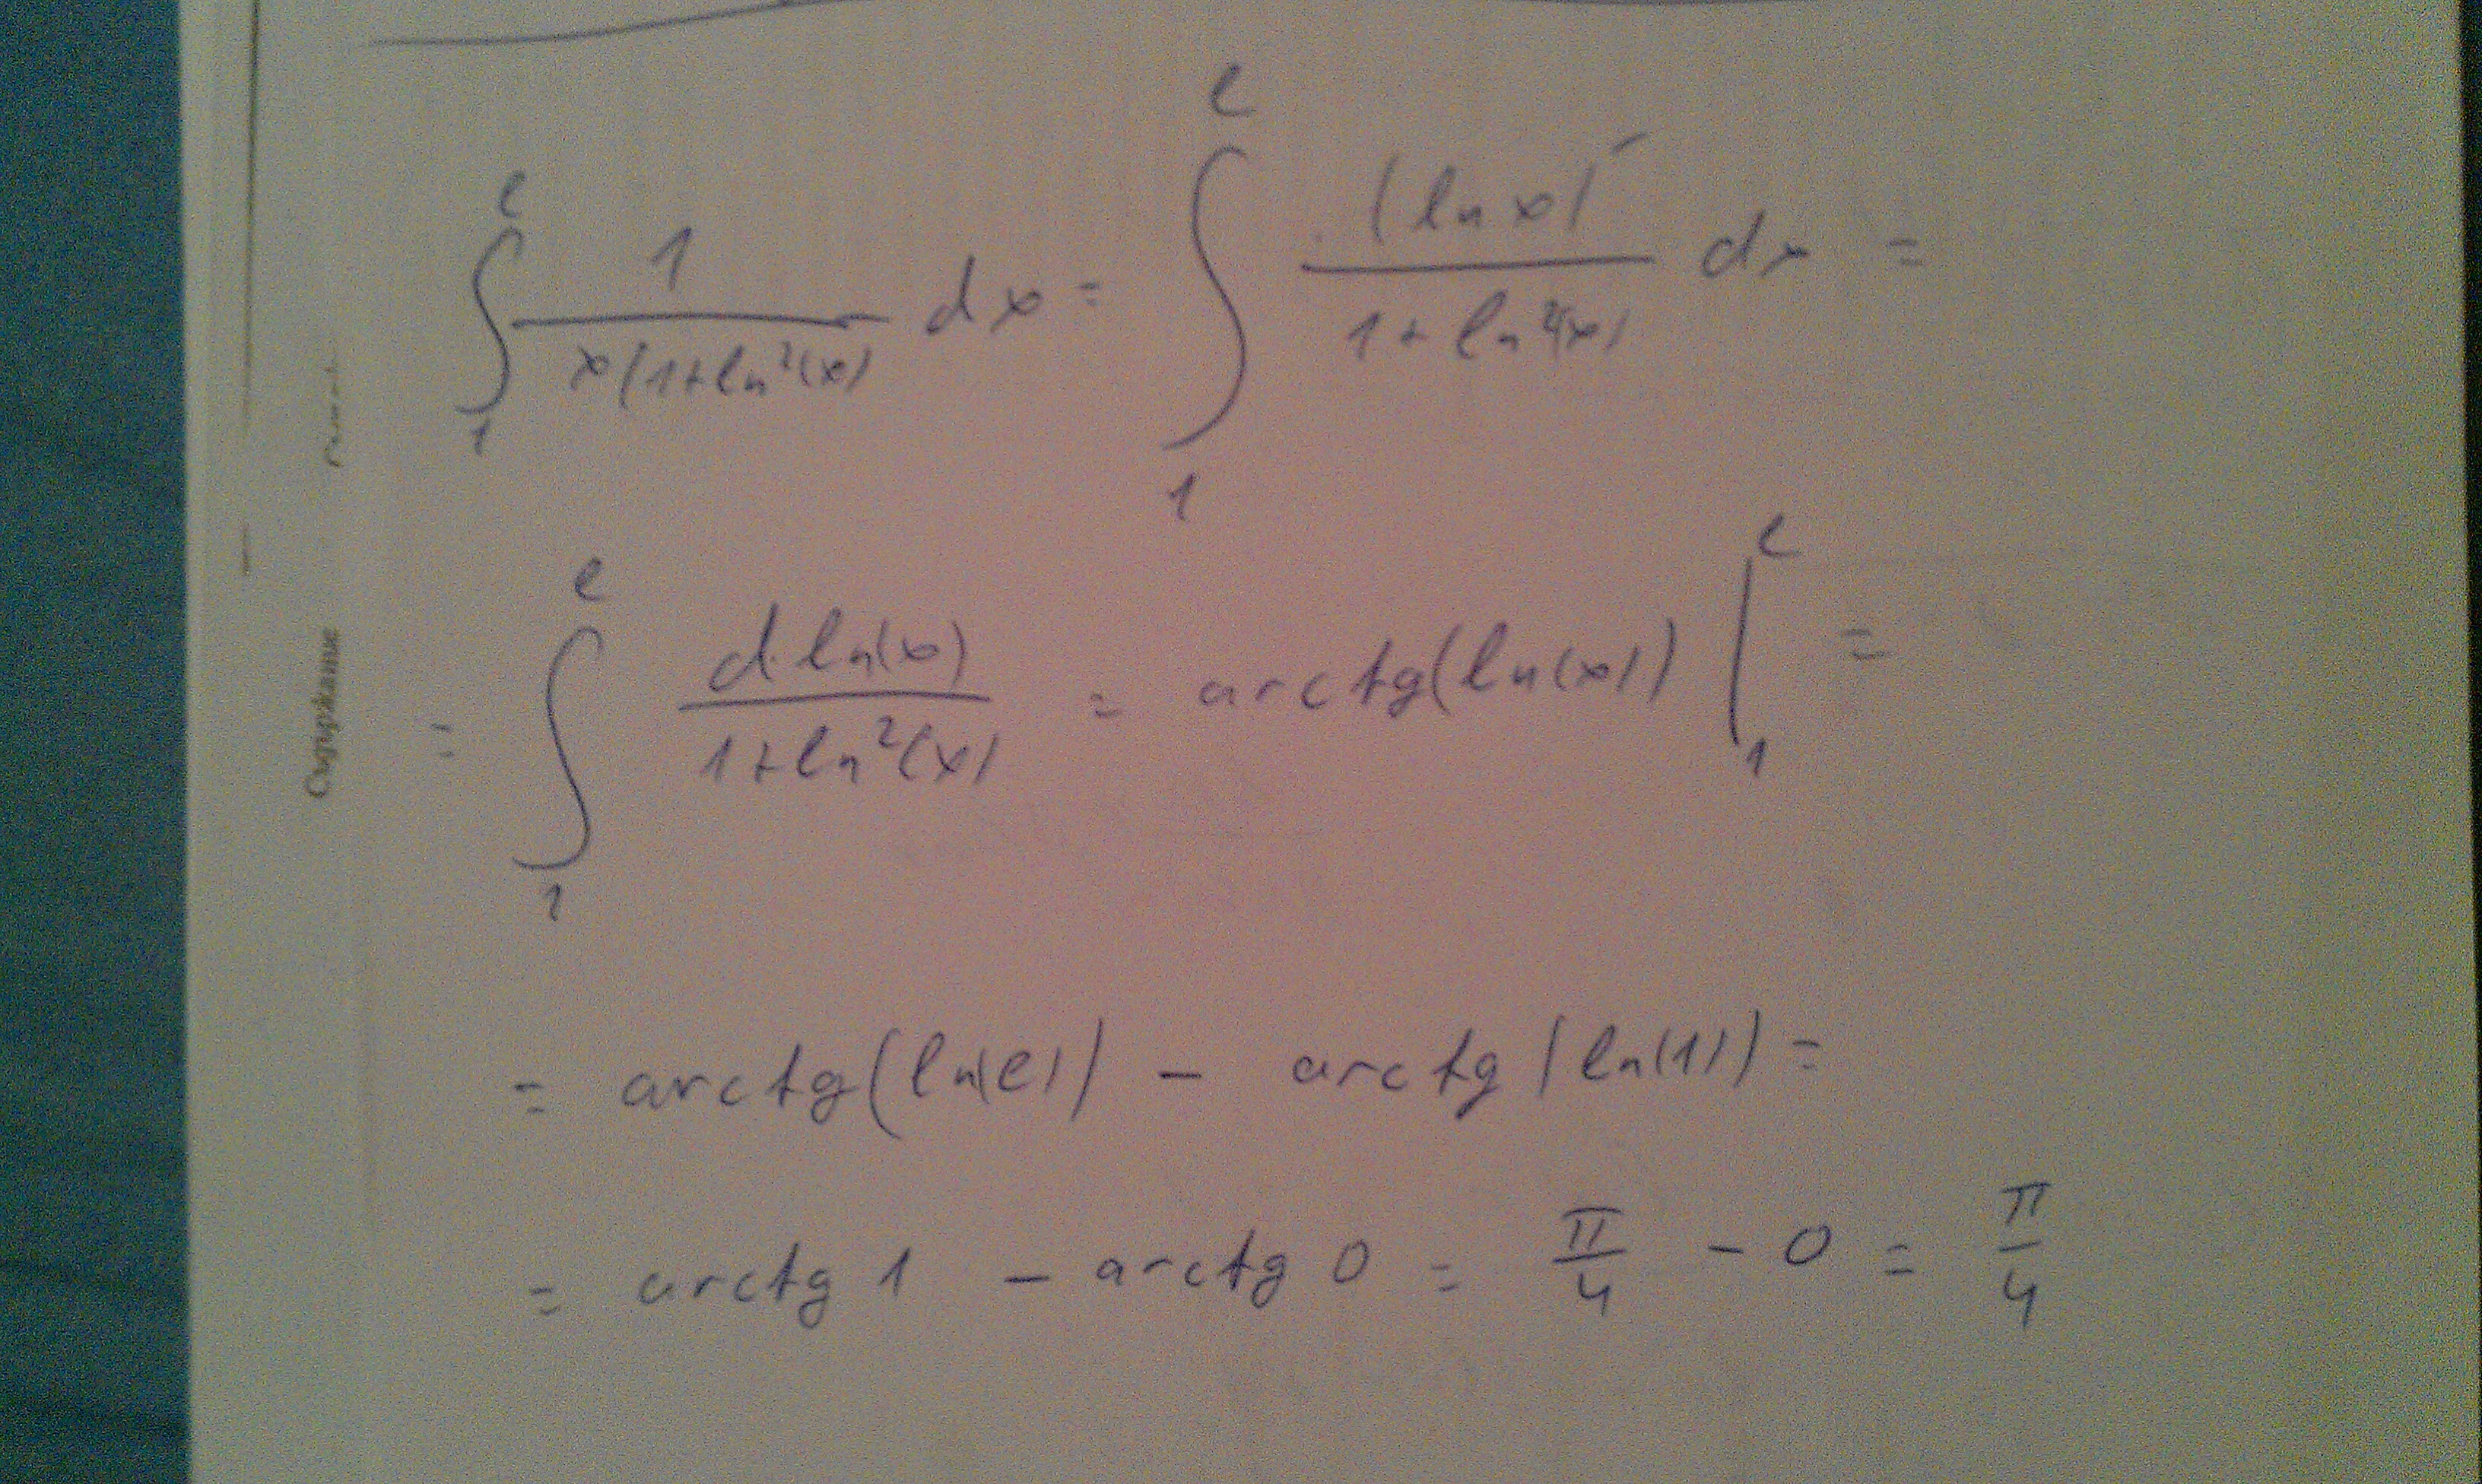 ∫₁ᵉ 1/(x(1+ln²(x)) dx = ∫₁ᵉ (ln x)′/(1+ln²(x)) dx =
= ∫₁ᵉ d ln(x)/(1+ln²(x)) = arctg(ln(x)) |₁ᵉ =
= arctg(ln(e)) - arctg(ln(1)) =
= arctg 1 - arctg 0 = π/4 - 0 = π/4
Съдържание